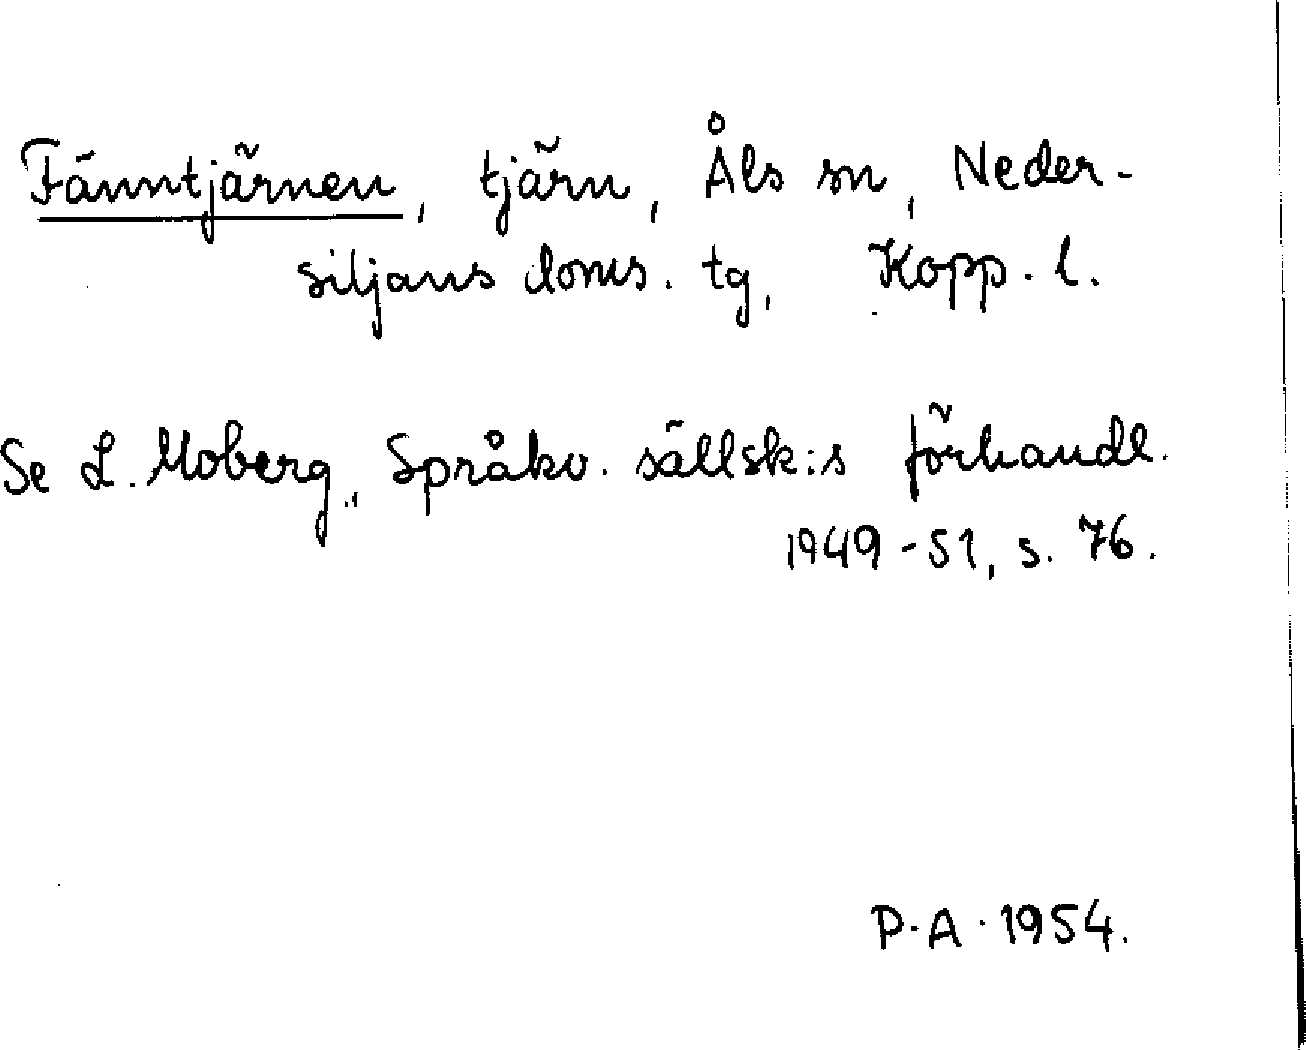 Fänntjärnen, tjärn, Åls sn, Neder-
siljans doms. tg, Kopp. l.
Se L. Moberg, Språkv. sällsk:s förhandl.
1949-51, s. 76.
P.A. 1954.